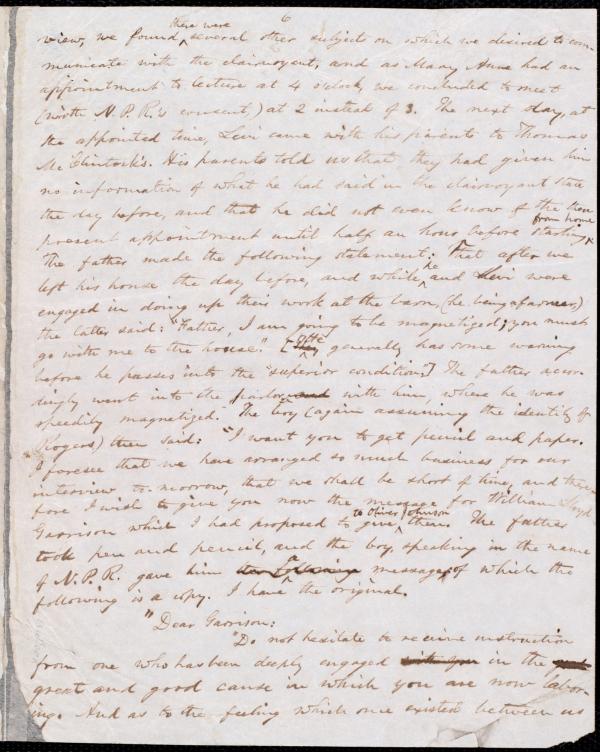 6
view, we found ^there were several other subjects on which we desired to com-
municate with the clairvoyant, and as Mary Anne had an
appointment to lecture at 4 o'clock, we concluded to meet
(with N. P. R.'s consent,) at 2 instead of 3. The next day, at
the appointed time, Levi came with his parents to Thomas
McClintock's. His parents told us that they had given him
no information of what he had said in the clairvoyant state
the day before, and that he did not even know of the then
present appointment until half an hour before starting ^from home.
The father made the following statement: That after we
left his house the day before, and while ^he and Levi were
engaged in doing up their work at the barn, (he being a farmer,)
the latter said: "Father, I am going to be magnetized; you must
go with me to the house." [He generally has some warning
before he passes into the "superior condition."] The father accor-
dingly went into the parlor with him, where he was
speedily magnetized. The boy (again assuming the identity of
Rogers) then said: "I want you to get pencil and paper.
I foresee that we have arranged so much business for our
interview to-morrow, that we shall be short of time, and there-
fore I wish to give you now the message for William Lloyd
Garrison which I had proposed to give ^to Oliver Johnson then. The father
took pen and pencil, and the boy, speaking in the name
of N. P. R. gave him ^a message, of which the
following is a copy. I have the original.
"Dear Garrison:
"Do not hesitate to receive instruction
from one who has been deeply engaged in the
great and good cause in which you are now labor-
ing. And as to the feeling which once existed between us